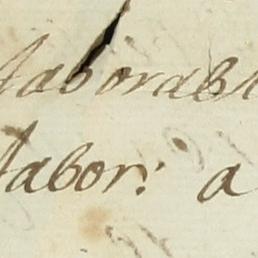 laborabl
labor: a